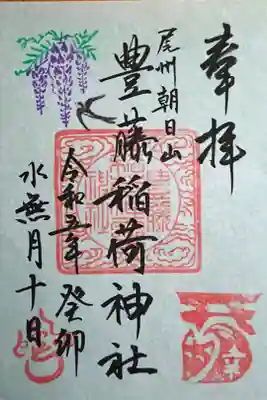 奉拝
尾州朝日山
豊藤稲荷神社
令和五年 癸卯
水無月十日